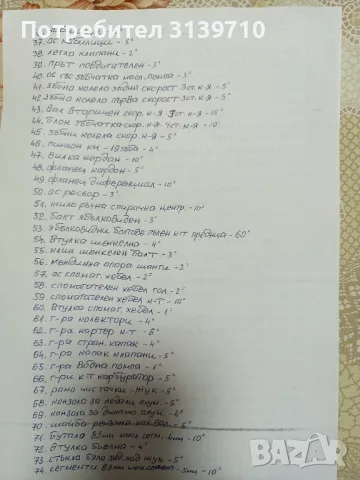 Потребител 3139710
37. ос кобилици - 5°
38. легло клапани - 2°
39. прът повдигателен - 3°
40. ос със зъбчатка масл. помпа - 3°
41. зъбно колело задна скорост 3ст. к-я - 5°
42. зъбно колело първа скорост 3ст. к-я - 5°
43. вал вторичен скор. к-я 3ст. к-я - 15°
44. блок зъбчатка скор. к-я 4ст. к-я - 10°
45. зъбни колела скор. к-я - 5°
46. пиньон км - 4°
47. вилка кардан - 10°
48. фланец кардан - 5°
49. фланец диференциал - 10°
50. ос ресьор - 3°
51. жило ръчна спирачка центр. - 10°
52. болт ябълковиден - 3°
53. ябълковидни болтове пълен к-т предница - 60°
54. втулка шенкелна - 4°
55. клин шенкелен болт - 3°
56. междинна опора щанги - 2°
57. ос спомаг. хебел - 2°
58. спомагателен хебел гол - 2°
59. спомагателен хебел к-т - 15°
60. втулка спомаг. хебел - 1°
61. г-ра колектори - 4°
62. г-ра картер к-т - 6°
63. г-ра стран. капак - 4°
64. г-ра капак клапани - 5°
65. г-ра водна помпа - 1°
66. г-ри к-т карбуратор - 5°
67. рамо чистачки жук - 5°
68. конзола за педали алум. - 5°
69. конзола за динамо алум. - 4°
70. шайба ремъчна кол. вал - 5°
71. бутала 83мм - 10°
72. втулка биелна - 4°
73. стъкла бяла зад. ход жук - 5°
74. сегменти 83мм - 5мм - 10°
bazar.bg